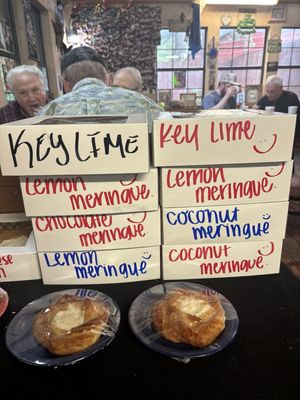 KEY LIME
Lemon
meringue
Chocolate
meringue
Lemon
meringue
Key Lime
Lemon
meringue
Coconut
meringue
Coconut
meringue